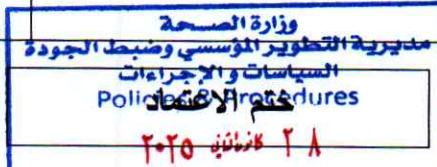 وزارة الصحة
مديرية التطوير المؤسسي وضبط الجودة
السياسات والإجراءات
Policies & Procedures
ختم الاعتماد
٢٨ كانون ثاني ٢٠٢٥